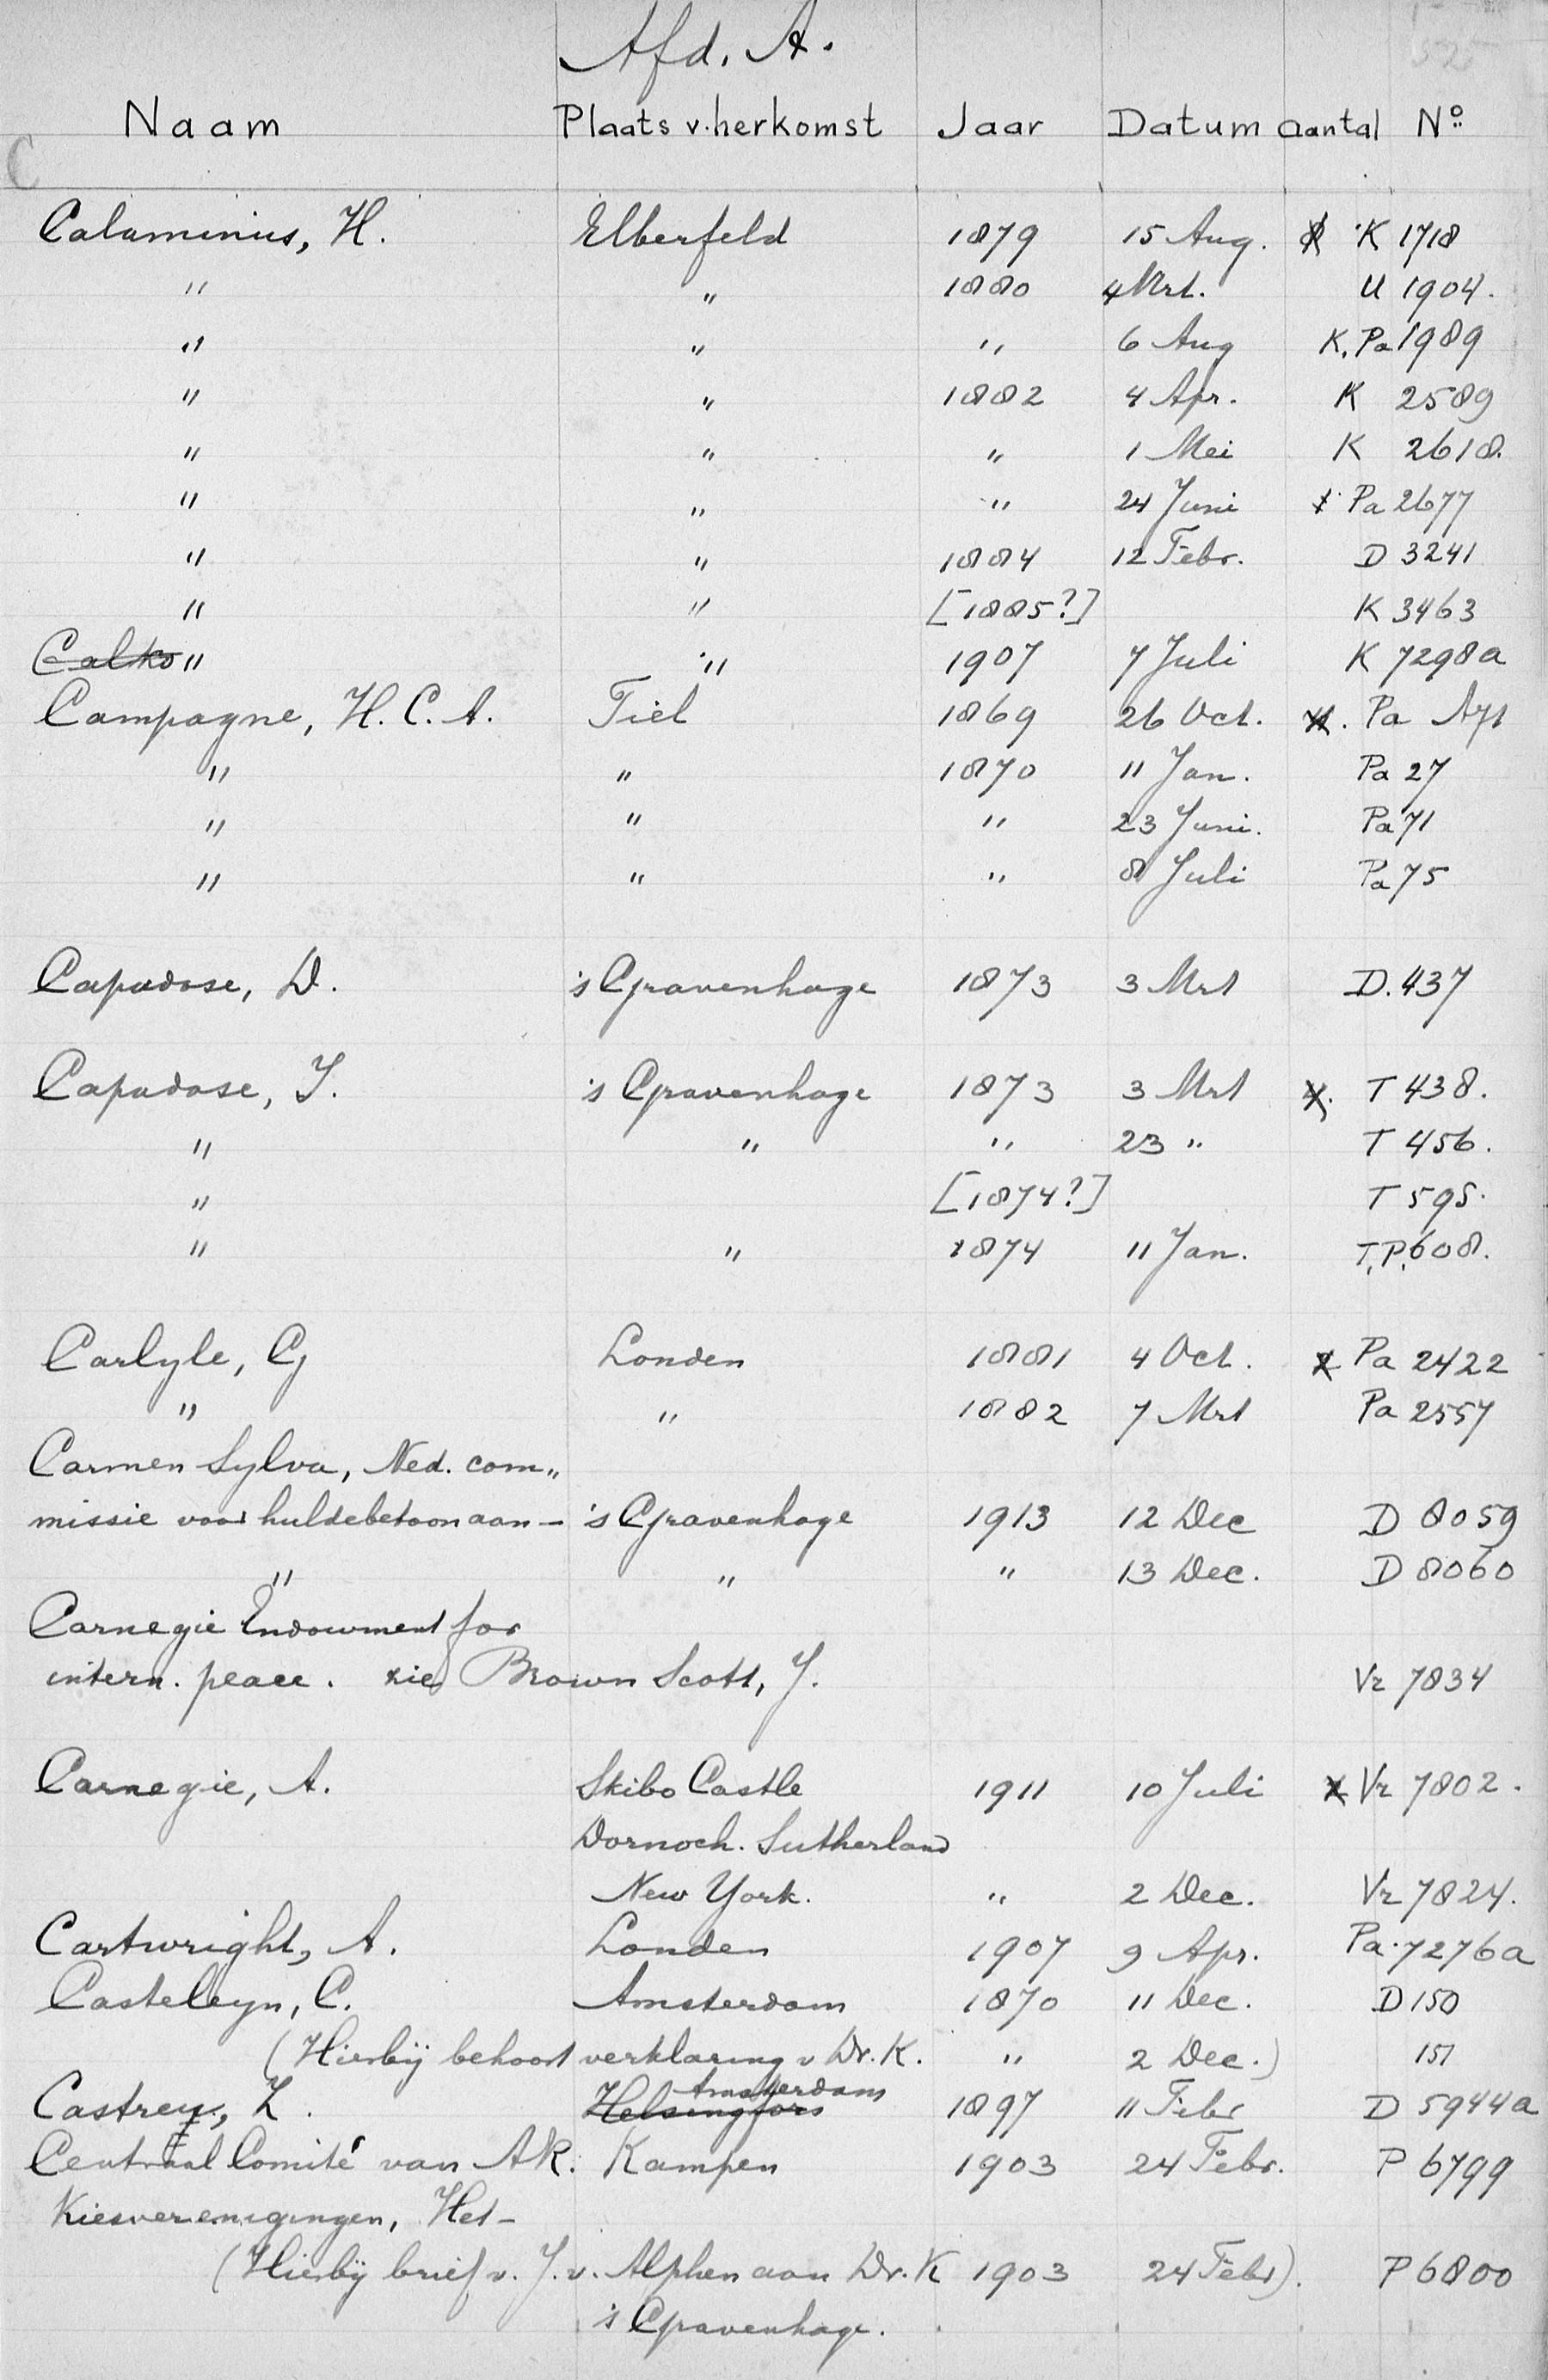 Afd. A.
Naam Plaats v. herkomst Jaar Datum aantal No.
C
Calaminius, H. Elberfeld 1879 15 Aug. K 1718
" " 1880 4 Mrt. U 1904.
" " " 6 Aug K, Pa 1989
" " 1882 4 Apr. K 2589
" " " 1 Mei K 2618.
" " " 24 Juni Pa 2677
" " 1884 12 Febr. D 3241
" " [1885?] K 3463
Calko " " 1907 7 Juli K 7298a
Campagne, H. C. A. Tiel 1869 26 Oct. Pa
" " 1870 11 Jan. Pa 27
" " " 23 Juni. Pa 71
" " " 8 Juli Pa 75
Capadose, D. 's Gravenhage 1873 3 Mrt D. 437
Capadose, I. 's Gravenhage 1873 3 Mrt T 438.
" " " 23 " T 456.
" [1874?] T 595.
" " 1874 11 Jan. T, P. 608.
Carlyle, G Londen 1881 4 Oct. Pa 2422
" " 1882 7 Mrt Pa 2557
Carmen Sylva, Ned. com„
missie voor huldebetoon aan – 's Gravenhage 1913 12 Dec D 8059
" " " 13 Dec. D 8060
Carnegie Endowment for
intern. peace. zie Brown Scott, J. Vr 7834
Carnegie, A. Skibo Castle 1911 10 Juli Vr 7802.
Dornoch. Sutherland
New York. " 2 Dec. Vr 7824.
Cartwright, A. Londen 1907 9 Apr. Pa. 7276a
Casteleyn, C. Amsterdam 1870 11 Dec. D 150
(Hierbij behoort verklaring v Dr. K. " 2 Dec.) 151
Amsterdam
Castrey, L. Helsingfors 1897 11 Febr D 5944a
Centraal Comité van AR. Kampen 1903 24 Febr. P 6799
Kiesverenigingen, Het –
(Hierbij brief v. J. v. Alphen aan Dr. K 1903 24 Febr). P 6800
's Gravenhage.